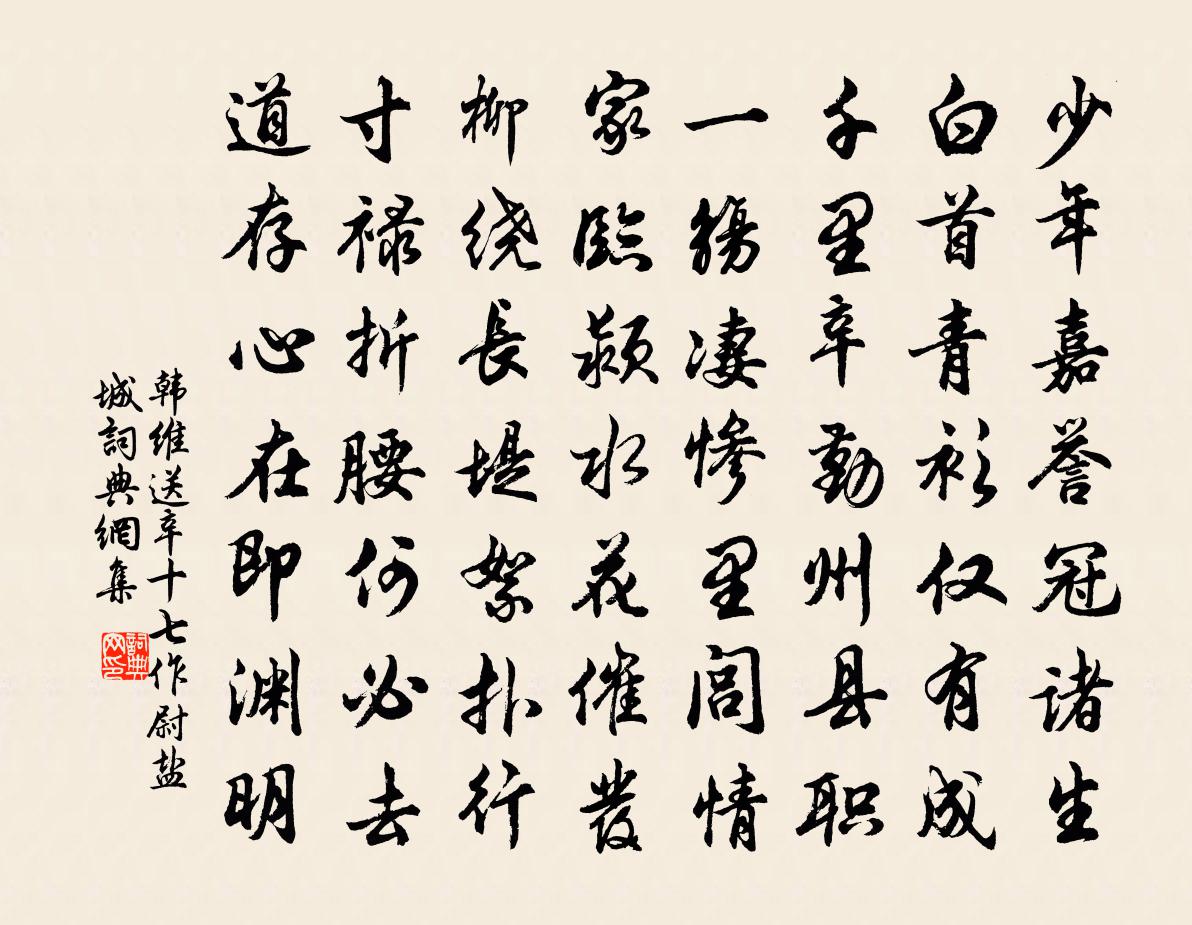 少年嘉誉冠诸生
白首青衫仅有成
千里辛勤州县职
一觞凄惨里闾情
家臨颍水花催發
柳绕長堤絮扑行
寸禄折腰何必去
道存心在即渊明
韩维送辛十七作尉盐
城詞典網集
詞典
网印